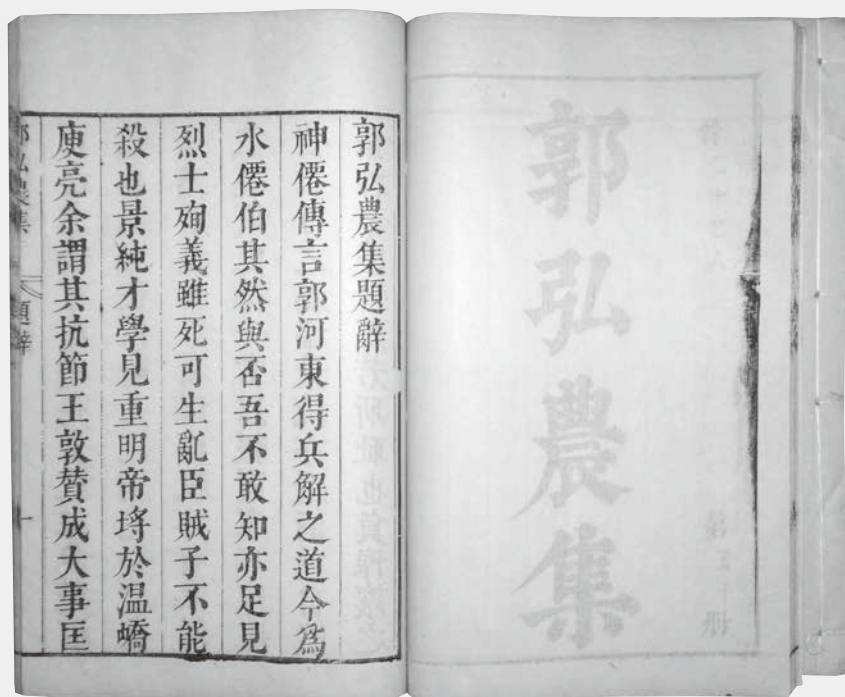 郭弘農集
郭弘農集題辭
神僊傳言郭河東得兵解之道今爲
水僊伯其然與否吾不敢知亦足見
烈士殉義雖死可生亂臣賊子不能
殺也景純才學見重明帝埒於温嶠
庾亮余謂其抗節王敦賛成大事匡
郭弘農集 題辭 一